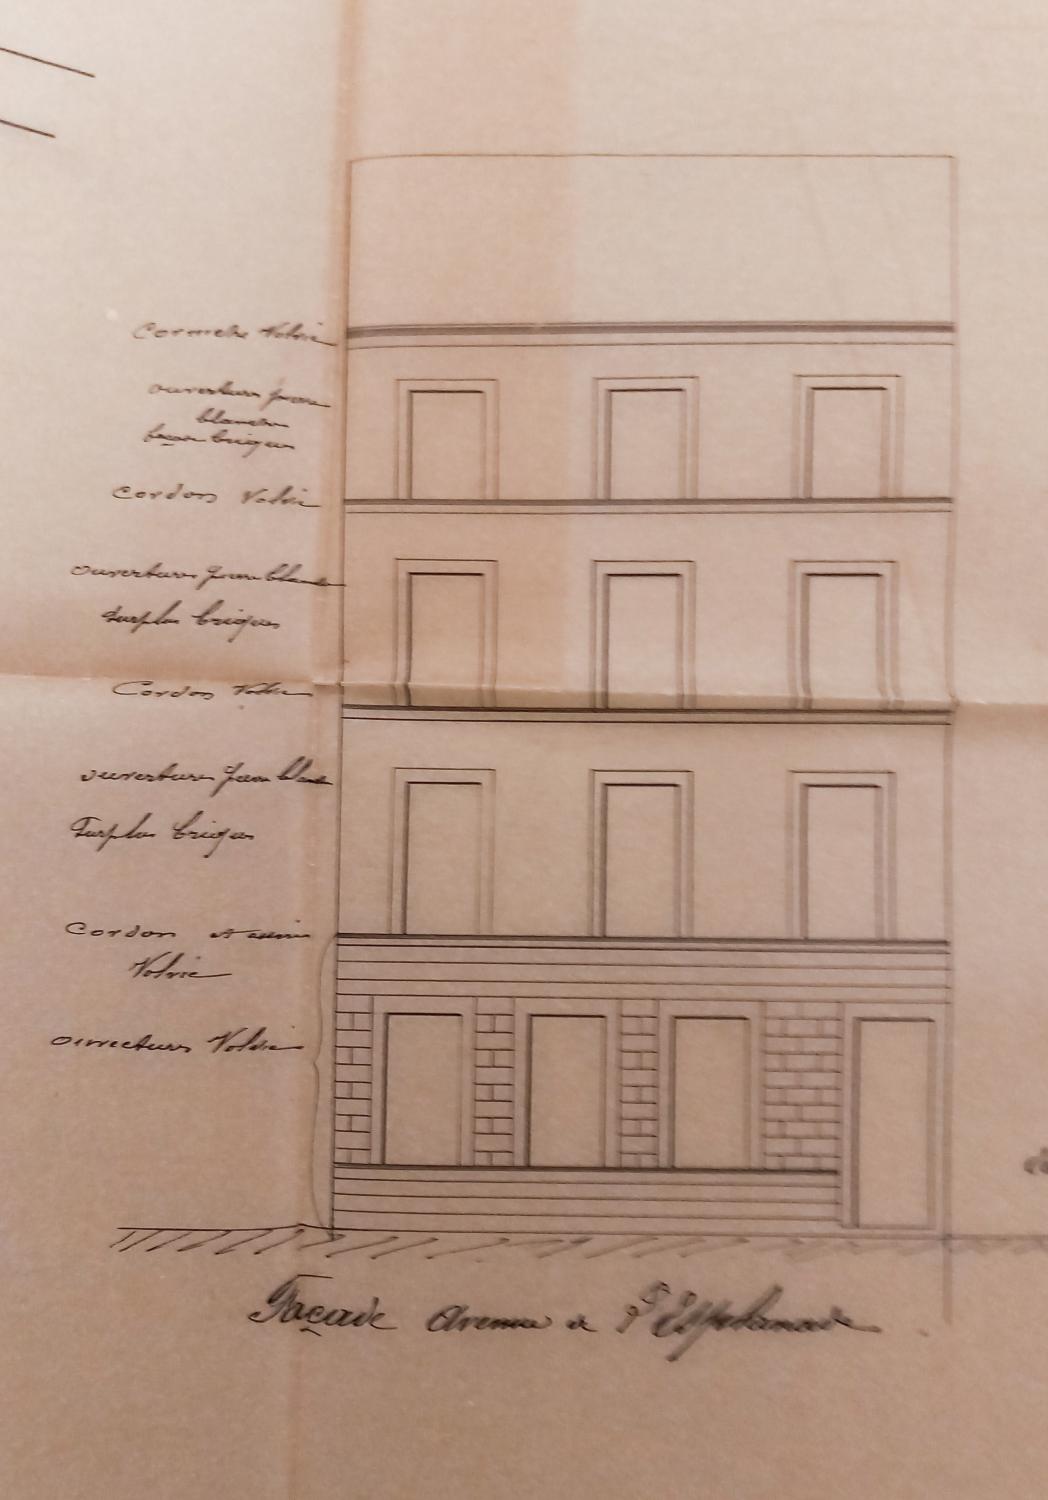 Corniche Volvic
ouverture pierre
blanche
façon briques
Cordon Volvic
ouverture pierre blanche
Surplus briques
Cordon Volvic
ouverture pierre blanche
Surplus briques
Cordon et
Volvic
ouvertures Volvic
Façade Avenue de l'Esplanade